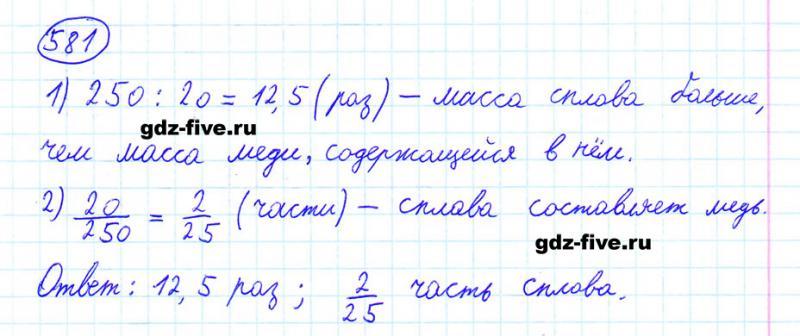 581
1) 250 : 20 = 12,5 (раз) – масса сплава больше,
gdz-five.ru
чем масса меди, содержащейся в нём.
2) 20/250 = 2/25 (части) – сплава составляет медь.
gdz-five.ru
Ответ: 12,5 раз; 2/25 часть сплава.